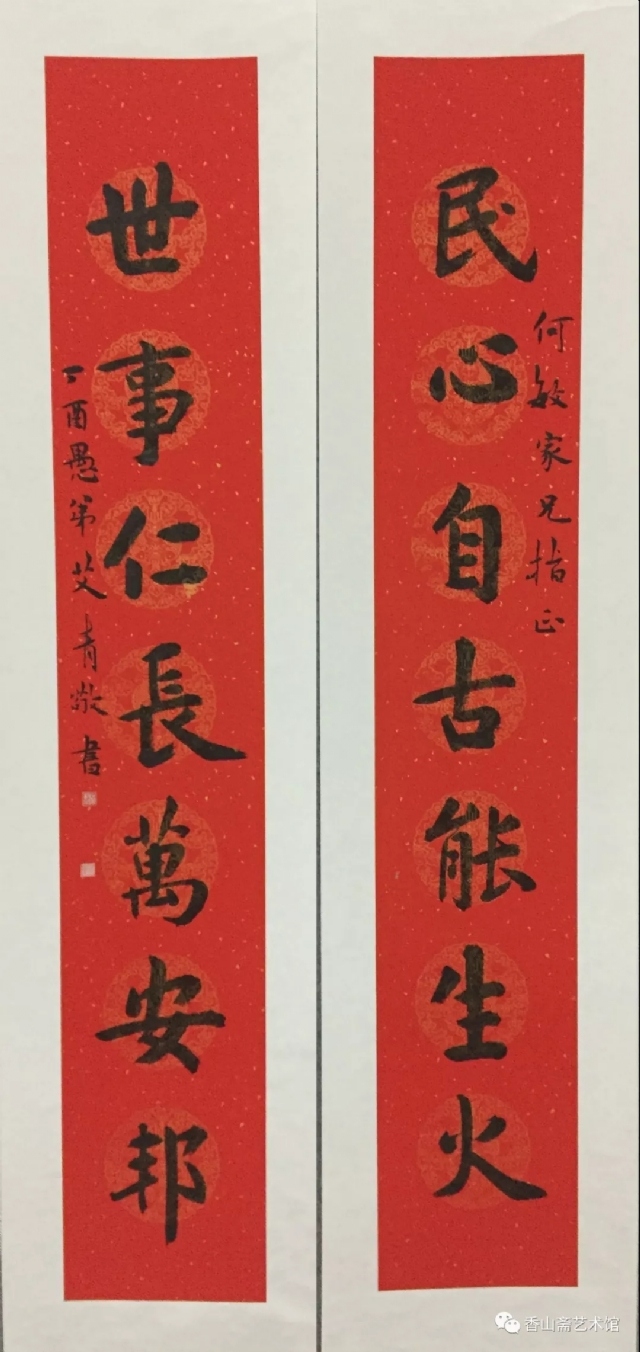 民心自古能生火
何敏家兄指正
世事仁長萬安邦
丁酉愚弟艾青敬書
香山斋艺术馆